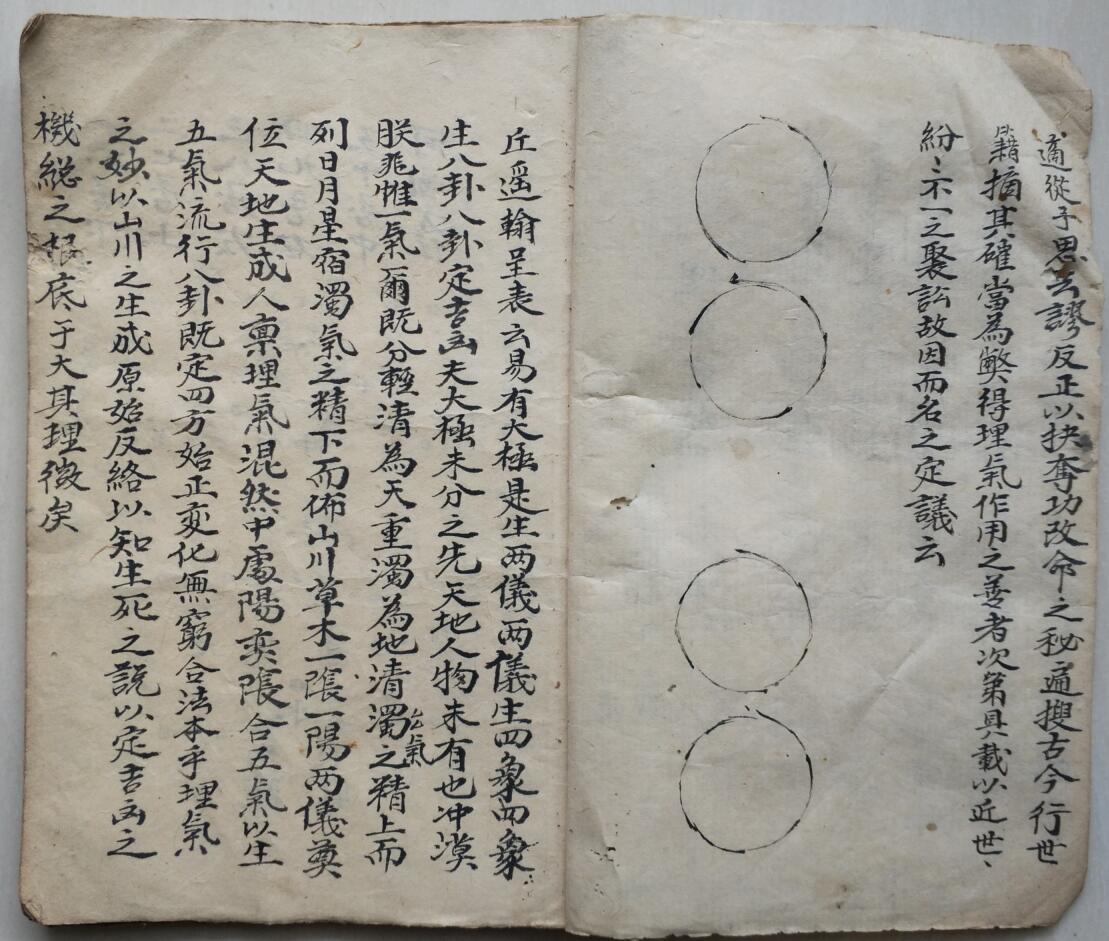 適從予思去謬反正以抉奪功改命之秘遍搜古今行世
籍摘其確當為獘得理氣作用之善者次第具載以近世、
紛〻不一之聚訟故因而名之定議云
丘遥翰呈表云易有大極是生两儀两儀生四象四象
生八卦八卦定吉凶夫大極未分之先天地人物未有也冲漠
朕兆惟一氣爾既分輕清為天重濁為地清濁之精上而
列日月星宿濁氣之精下而佈山川草木一陰一陽两儀奠
位天地生成人禀理氣混然中處陽变陰合五氣以生
五氣流行八卦既定四方始正变化無窮合法本乎理氣
之妙以山川之生成原始反終以知生死之說以定吉凶之
機総之根底于大其理微矣